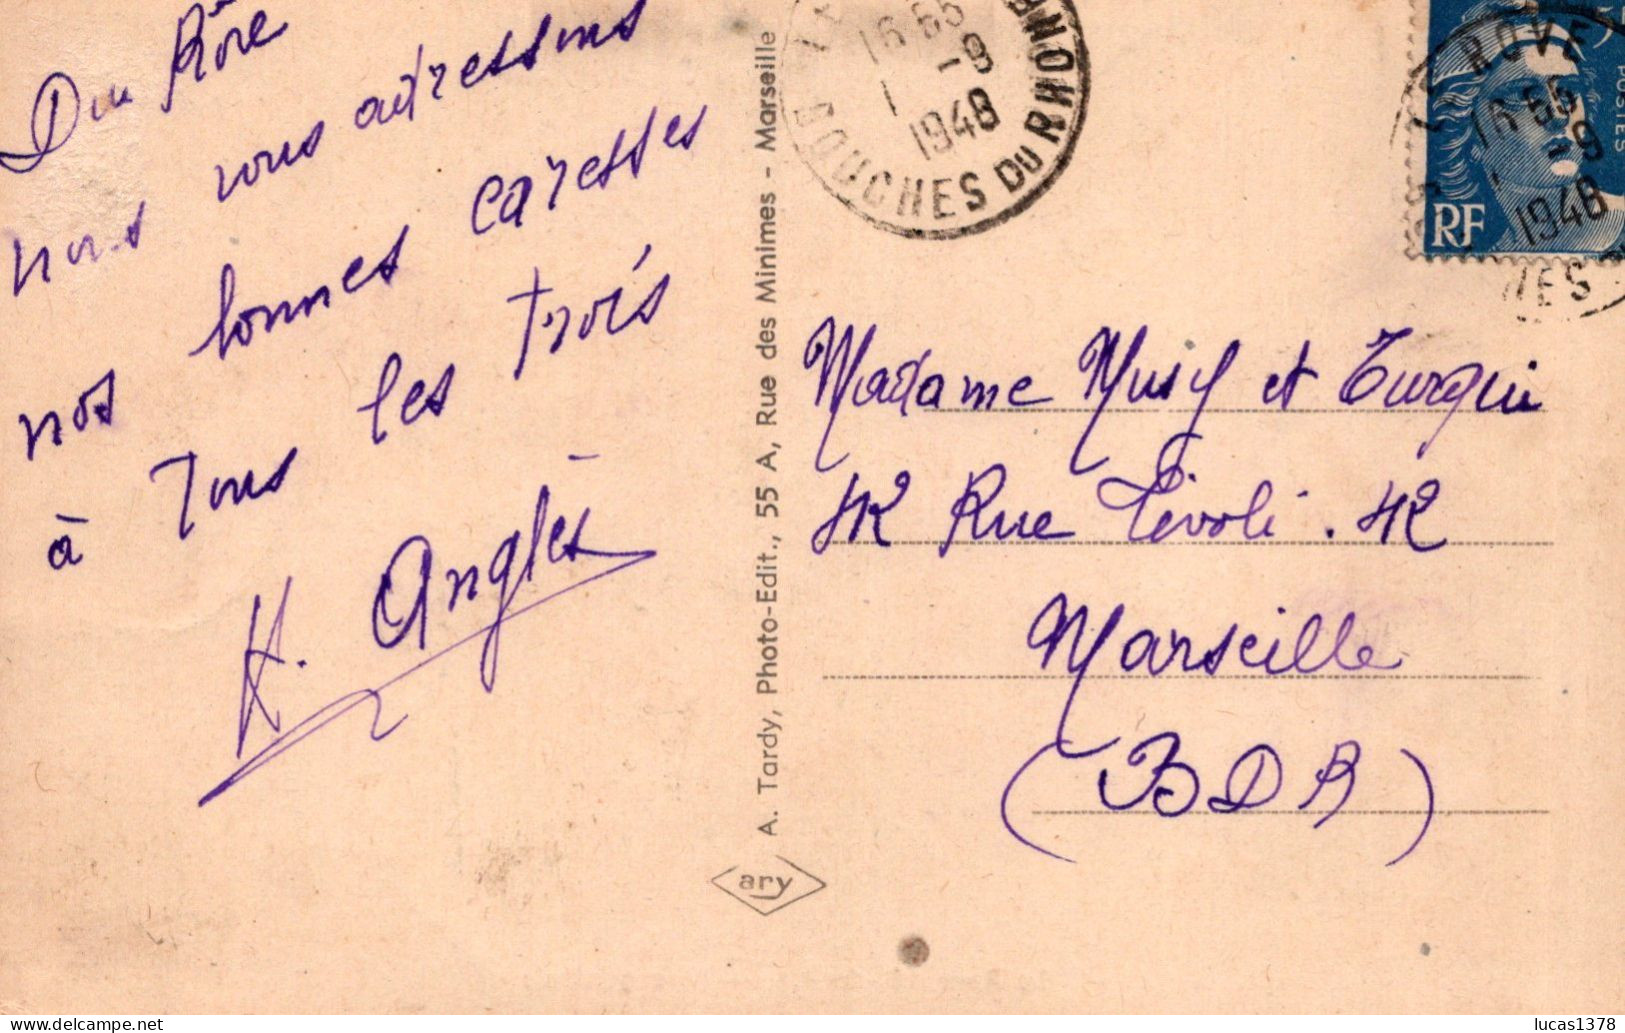 Du Rôve
nous vous adressons
nos bonnes caresses
à tous les trois
H. Anglès
A. Tardy, Photo-Edit., 55 A, Rue des Minimes - Marseille
ary
16 55
1 -9
1948
BOUCHES DU RHONE
ROVE
POSTES
16 55
1 -9
1948
RF
Madame Musy et Turquie
42 Rue Tivoli . 42
Marseille
(BDR)
lucas1378